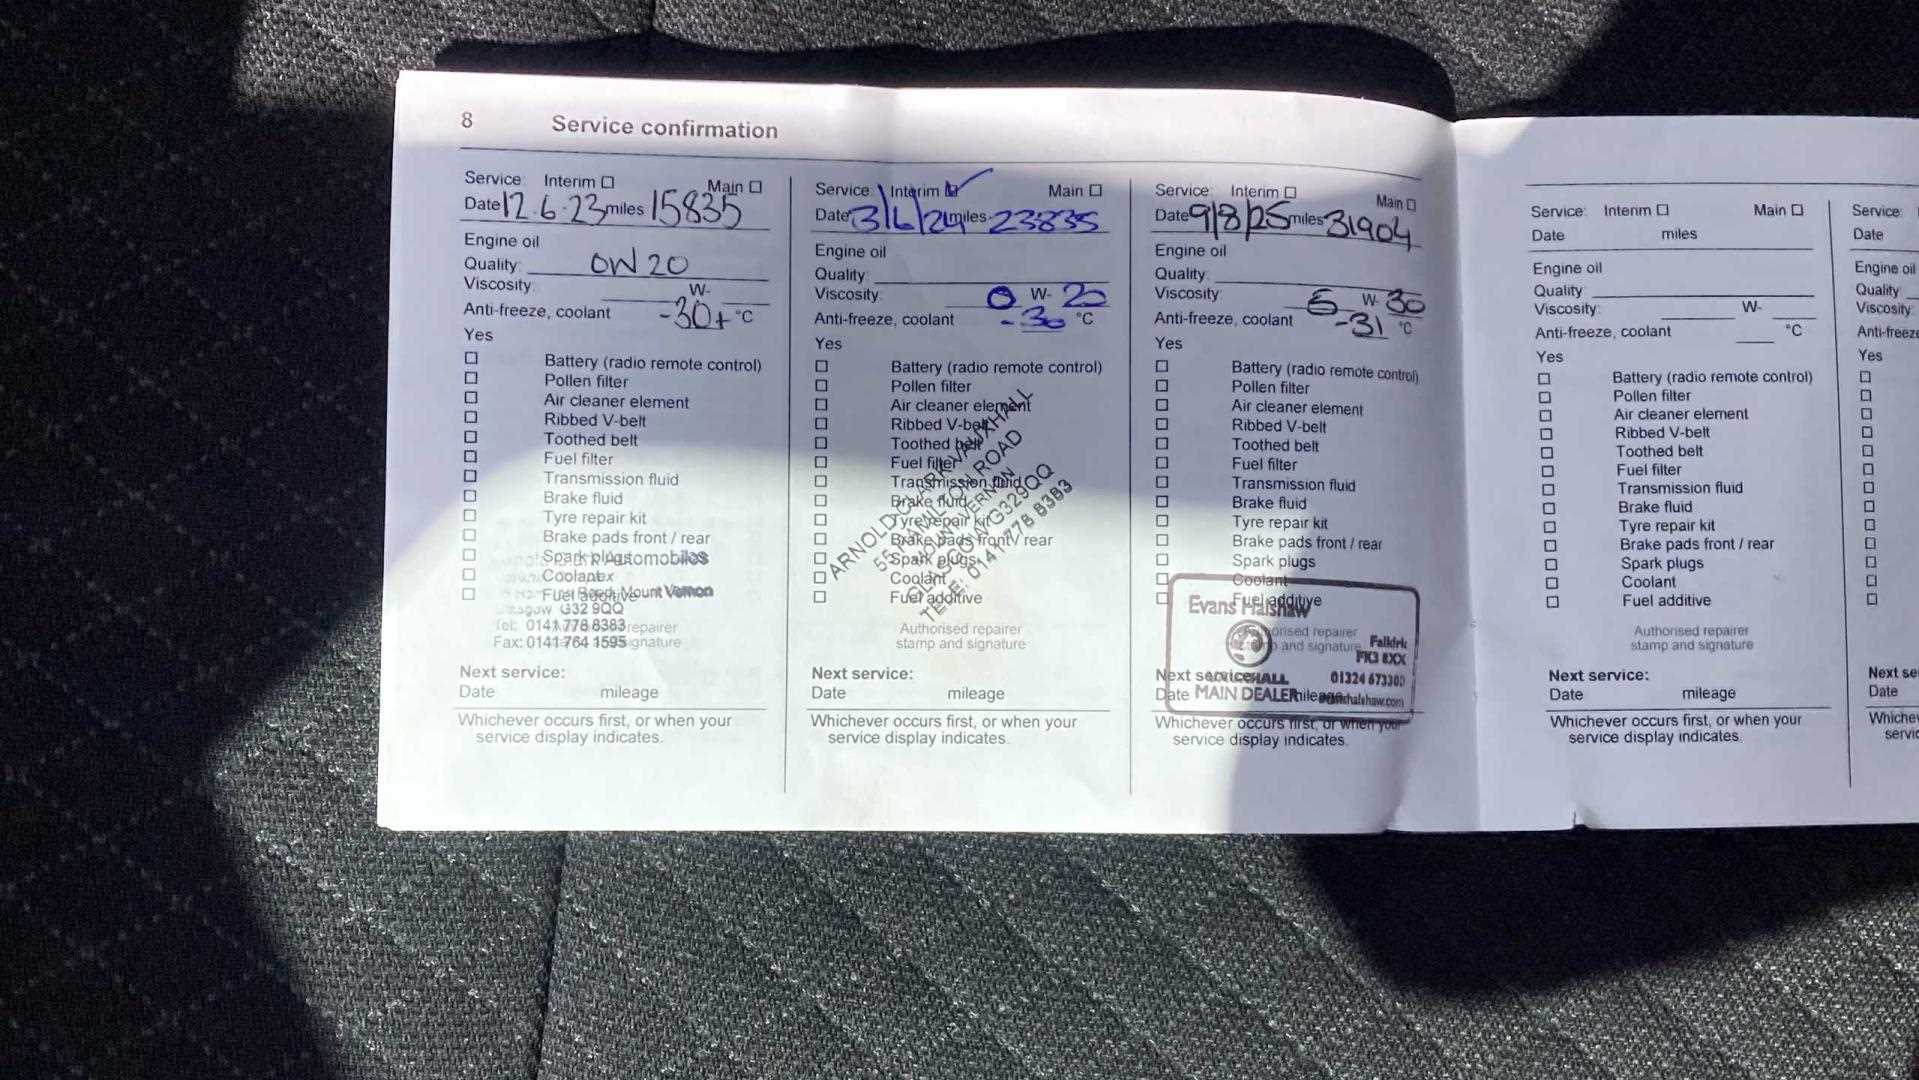 8 Service confirmation
Service: Interim ☐ Main ☐
Date 12.6.23 miles 15835
Engine oil
Quality: 0W20
Viscosity: W-
Anti-freeze, coolant -30+ °C
Yes
☐ Battery (radio remote control)
☐ Pollen filter
☐ Air cleaner element
☐ Ribbed V-belt
☐ Toothed belt
☐ Fuel filter
☐ Transmission fluid
☐ Brake fluid
☐ Tyre repair kit
☐ Brake pads front / rear
☐ Spark plugs
☐ Coolant
☐ Fuel additive
Automobiles
Road, Mount Vernon
G32 9QQ
Tel: 0141 778 8383
Fax: 0141 764 1595
repairer
signature
Next service:
Date mileage
Whichever occurs first, or when your
service display indicates.
Service: Interim ☑ Main ☐
Date 3/6/24 miles 23835
Engine oil
Quality:
Viscosity: 0 W- 20
Anti-freeze, coolant -30 °C
Yes
☐ Battery (radio remote control)
☐ Pollen filter
☐ Air cleaner element
☐ Ribbed V-belt
☐ Toothed belt
☐ Fuel filter
☐ Transmission fluid
☐ Brake fluid
☐ Tyre repair kit
☐ Brake pads front / rear
☐ Spark plugs
☐ Coolant
☐ Fuel additive
ARNOLD CLARK VAUXHALL
HAMILTON ROAD
MOUNT VERNON
GLASGOW G32 9QQ
TELE: 0141 778 8383
Authorised repairer
stamp and signature
Next service:
Date mileage
Whichever occurs first, or when your
service display indicates.
Service: Interim ☐ Main ☐
Date 9/8/25 miles 31904
Engine oil
Quality:
Viscosity: 5 W- 30
Anti-freeze, coolant -31 °C
Yes
☐ Battery (radio remote control)
☐ Pollen filter
☐ Air cleaner element
☐ Ribbed V-belt
☐ Toothed belt
☐ Fuel filter
☐ Transmission fluid
☐ Brake fluid
☐ Tyre repair kit
☐ Brake pads front / rear
☐ Spark plugs
☐ Coolant
☐ Fuel additive
Evans Halshaw
repairer
and signature
Falkirk
FK3 8XX
MAIN DEALER
Next service:
Date mileage
Whichever occurs first, or when your
service display indicates.
Service: Interim ☐ Main ☐
Date miles
Engine oil
Quality:
Viscosity: W-
Anti-freeze, coolant °C
Yes
☐ Battery (radio remote control)
☐ Pollen filter
☐ Air cleaner element
☐ Ribbed V-belt
☐ Toothed belt
☐ Fuel filter
☐ Transmission fluid
☐ Brake fluid
☐ Tyre repair kit
☐ Brake pads front / rear
☐ Spark plugs
☐ Coolant
☐ Fuel additive
Authorised repairer
stamp and signature
Next service:
Date mileage
Whichever occurs first, or when your
service display indicates.
Service:
Date
Engine oil
Quality
Viscosity:
Yes
Date